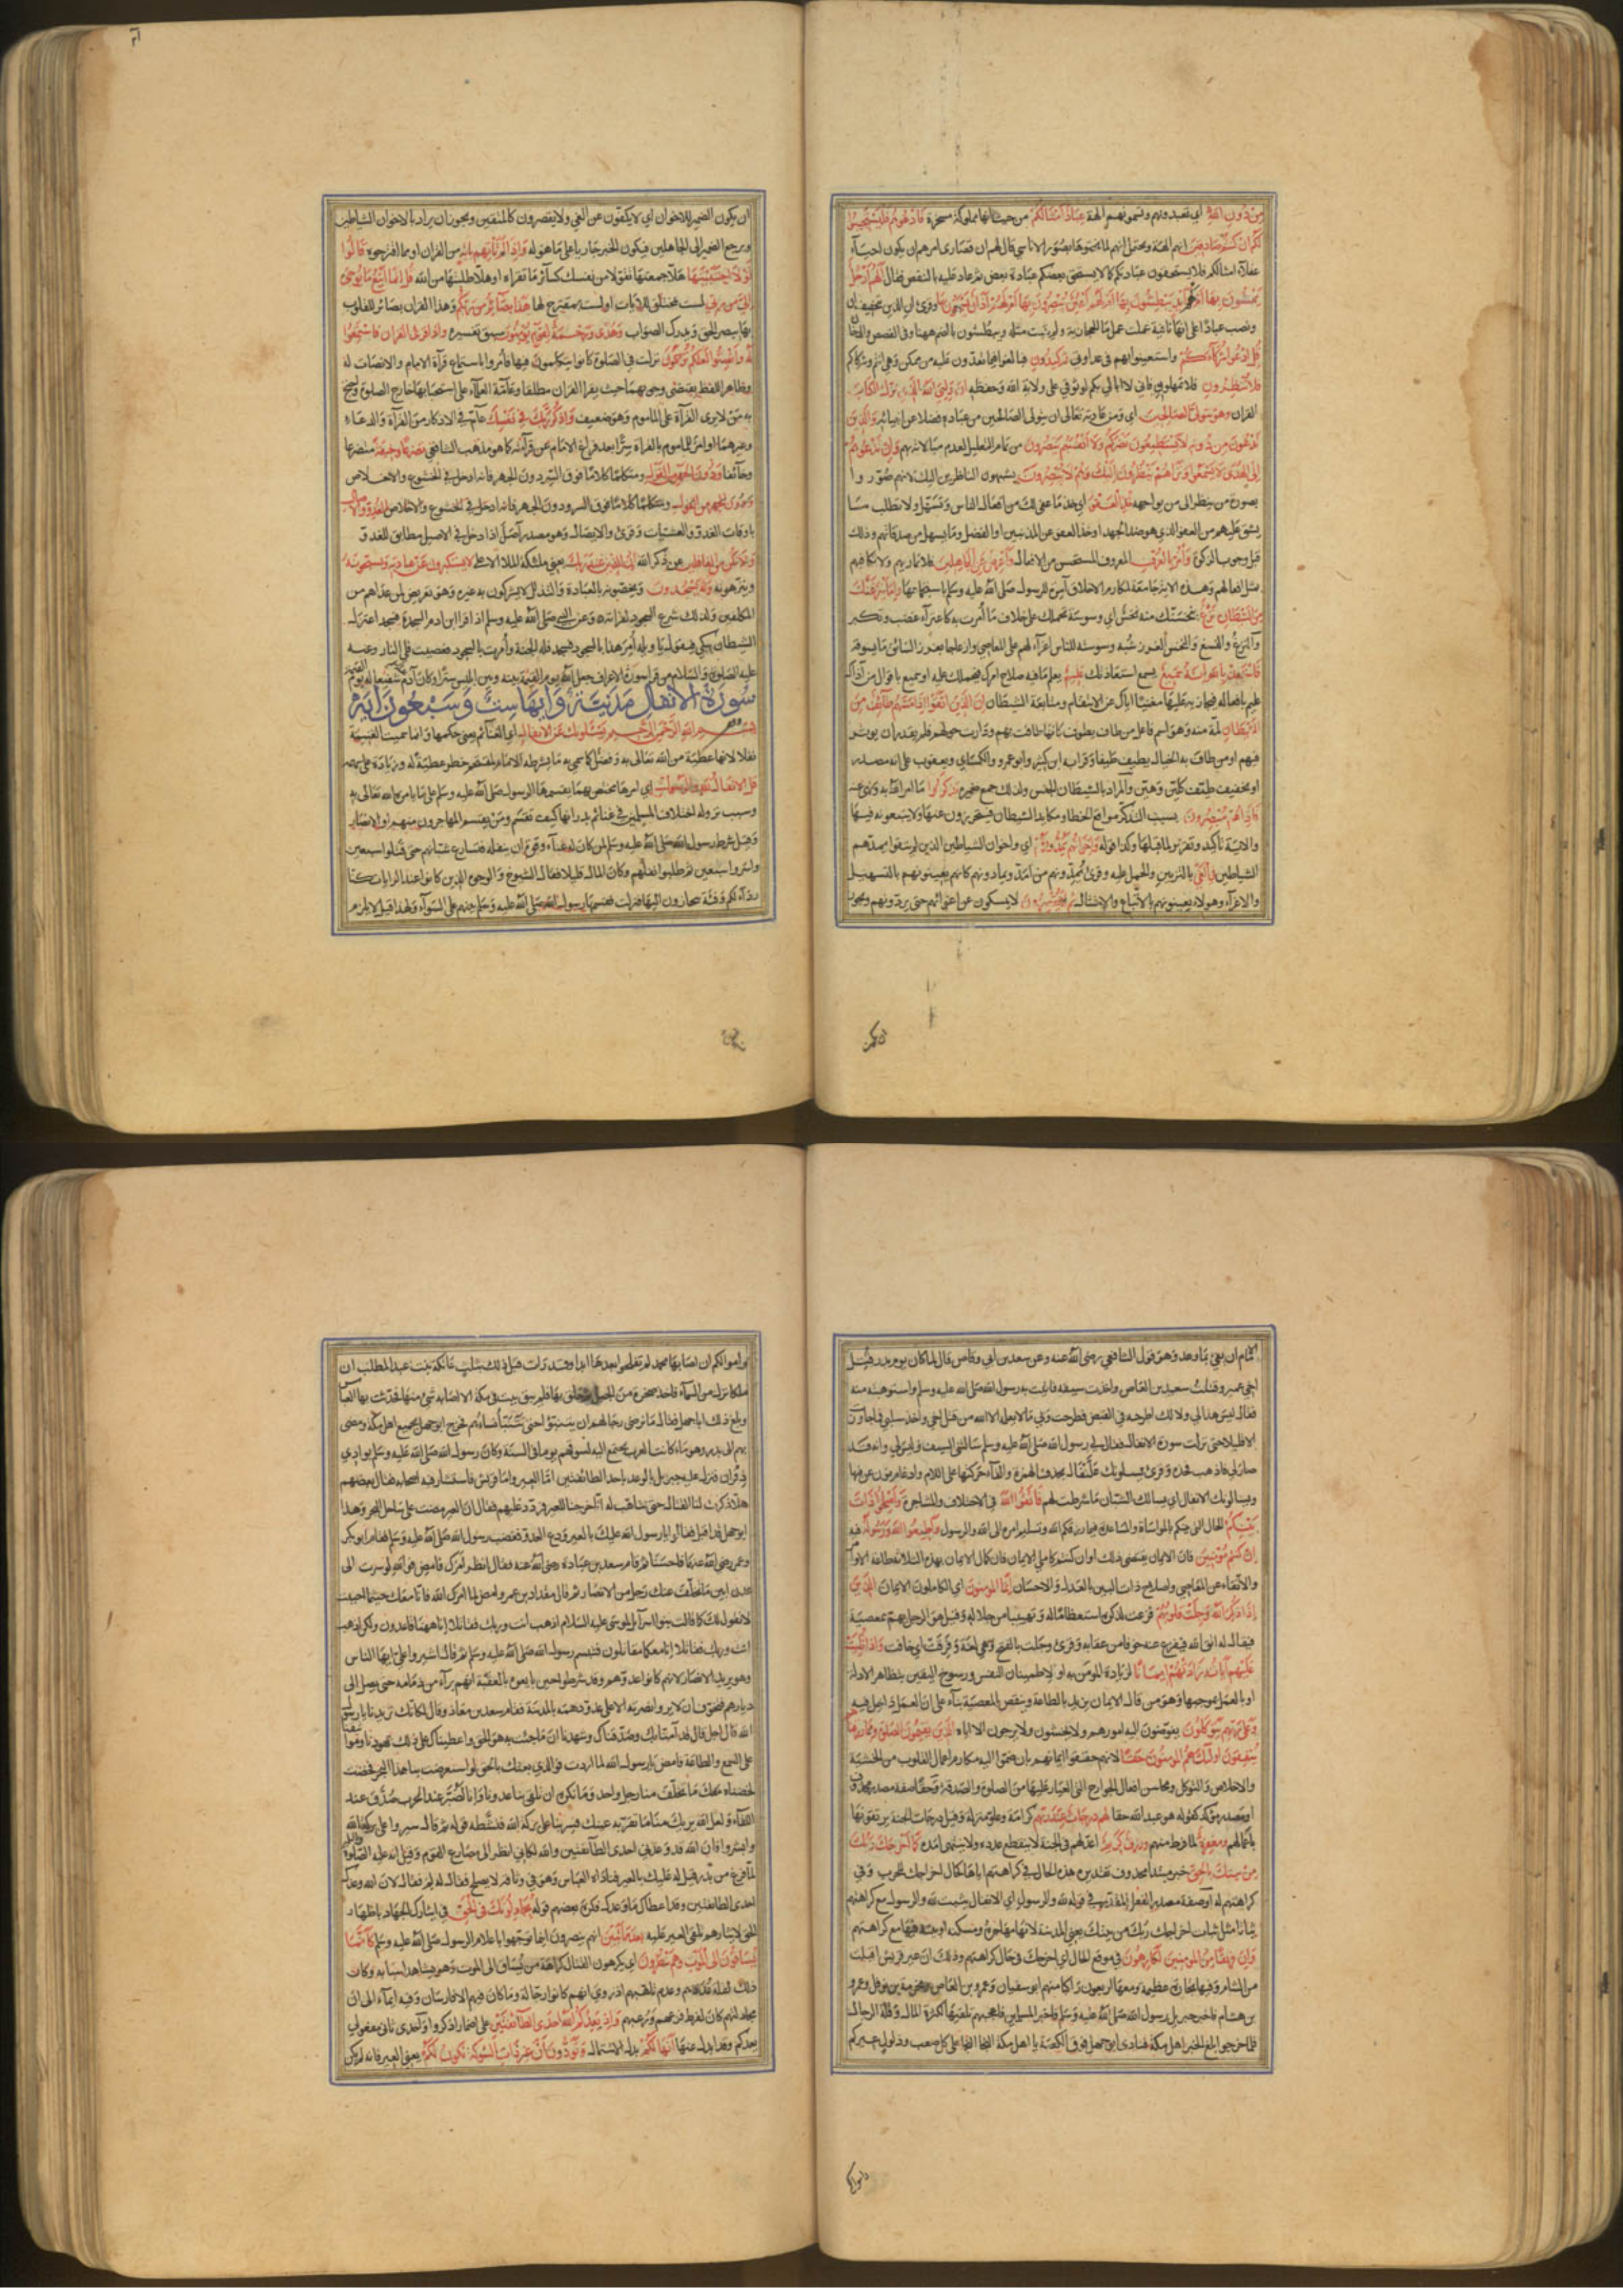 مِنْ دُونِ اللهِ اى تعبدونهم وتسمونهم الهة عِبَادٌ اَمْثَالُكُمْ من حيث انها مملوكة مسخرة فَادْعُوهُمْ فَلْيَسْتَجِيبُوا
لَكُمْ اِنْ كُنْتُمْ صَادِقِينَ انهم الهة ويحتمل انهم لما نحتوها بصور الاناسي قال لهم ان قصارى امرهم ان يكون احياء
عقلاء امثالكم فلا يستحقون عبادتكم كما لا يستحق بعضكم عبادة بعض ثم عاد عليه بالنقض فقال اَلَهُمْ اَرْجُلٌ
يَمْشُونَ بِهَا اَمْ لَهُمْ اَيْدٍ يَبْطِشُونَ بِهَا اَمْ لَهُمْ اَعْيُنٌ يُبْصِرُونَ بِهَا اَمْ لَهُمْ اٰذَانٌ يَسْمَعُونَ بِهَا وقرئ ان الذين بتخفيف ان
ونصب عبادا على انها نافية عملت عمل ما الحجازية ولم يثبت مثله ويبطشون بالضم ههنا وفي القصص والدخان
قُلِ ادْعُوا شُرَكَاءَكُمْ واستعينوا بهم في عداوتي ثُمَّ كِيدُونِ فبالغوا فيما تقدرون عليه من مكروهي انتم وشركاؤكم
فَلَا تُنْظِرُونِ فلا تمهلوني فاني لا ابالي بكم لوثوقي على ولاية الله وحفظه اِنَّ وَلِيِّيَ اللهُ الَّذِي نَزَّلَ الْكِتَابَ
القران وَهُوَ يَتَوَلَّى الصَّالِحِينَ اى ومن عادته تعالى ان يتولى الصالحين من عباده فضلا عن انبيائه وَالَّذِينَ
تَدْعُونَ مِنْ دُونِهِ لَا يَسْتَطِيعُونَ نَصْرَكُمْ وَلَا اَنْفُسَهُمْ يَنْصُرُونَ من تمام التعليل لعدم مبالاته بهم وَاِنْ تَدْعُوهُمْ
اِلَى الْهُدَى لَا يَسْمَعُوا وَتَرَاهُمْ يَنْظُرُونَ اِلَيْكَ وَهُمْ لَا يُبْصِرُونَ يشبهون الناظرين اليك لانهم صوروا
بصورة من ينظر الى من يواجهه خُذِ الْعَفْوَ اى خذ ما عفى لك من افعال الناس وتسهل ولا تطلب ما
يشق عليهم من العفو الذي هو ضد الجهد او خذ العفو عن المذنبين او الفضل وما يسهل من صدقاتهم وذلك
قبل وجوب الزكوة وَأْمُرْ بِالْعُرْفِ المعروف المستحسن من الافعال وَاَعْرِضْ عَنِ الْجَاهِلِينَ فلا تمارهم ولا تكافهم
بمثل افعالهم وهذه الاية جامعة لمكارم الاخلاق آمرة للرسول صلى الله عليه وسلم باستجماعها وَاِمَّا يَنْزَغَنَّكَ
مِنَ الشَّيْطَانِ نَزْغٌ ينخسنك منه نخس اى وسوسة تحملك على خلاف ما امرت به كاعتراء غضب وفكر
والنزغ والنسغ والنخس الغرز شبه وسوسته للناس اغراء لهم على المعاصي وازعاجا بغرز السائق ما يسوقه
فَاسْتَعِذْ بِاللهِ اِنَّهُ سَمِيعٌ يسمع استعاذتك عَلِيمٌ يعلم ما فيه صلاح امرك فيحملك عليه او سميع باقوال من آذاك
عليم بافعاله فيجازيه عليها مغنيا اياك عن الانتقام ومتابعة الشيطان اِنَّ الَّذِينَ اتَّقَوْا اِذَا مَسَّهُمْ طَائِفٌ مِنَ
الشَّيْطَانِ لمة منه وهو اسم فاعل من طاف يطوف كانها طافت بهم ودارت حولهم فلم يقدر ان يوثر
فيهم او من طاف به الخيال يطيف طيفا وقرا به ابن كثير وابو عمرو والكسائي ويعقوب على انه مصدر
او تخفيف طيف كلين وهين والمراد بالشيطان الجنس ولذلك جمع ضميره تَذَكَّرُوا ما امر الله به ونهى عنه
فَاِذَا هُمْ مُبْصِرُونَ بسبب التذكر مواقع الخطاء ومكايد الشيطان فيتحرزون عنها ولا يتبعونه فيها
والاية تاكيد وتقرير لما قبلها وكذا قوله وَاِخْوَانُهُمْ يَمُدُّونَهُمْ اى واخوان الشياطين الذين لم يتقوا يمدهم
الشياطين فِي الْغَيِّ بالتزيين والحمل عليه وقرئ يمدونهم من امد ويمادونهم كانهم يعينونهم بالتسهيل
والاغراء وهولاء يعينونهم بالاتباع والامتثال ثُمَّ لَا يُقْصِرُونَ لا يمسكون عن اغوائهم حتى يردونهم ويجوز
ان يكون الضمير للاخوان اى لا يكفون عن الغي ولا يقصرون كالمتقين ويجوز ان يراد بالاخوان الشياطين
ويرجع الضمير الى الجاهلين فيكون الخبر جاريا على ما هو له وَاِذَا لَمْ تَأْتِهِمْ بِاٰيَةٍ من القران او مما اقترحوه قَالُوا
لَوْلَا اجْتَبَيْتَهَا هلا جمعتها تقولا من نفسك كسائر ما تقراه او هلا طلبتها من الله قُلْ اِنَّمَا اَتَّبِعُ مَا يُوحَى
اِلَيَّ مِنْ رَبِّي لست بمختلق للآيات او لست بمقترح لها هَذَا بَصَائِرُ مِنْ رَبِّكُمْ وهذا القران بصائر للقلوب
بها يبصر الحق ويدرك الصواب وَهُدًى وَرَحْمَةٌ لِقَوْمٍ يُؤْمِنُونَ سبق تفسيره وَاِذَا قُرِئَ الْقُرْاٰنُ فَاسْتَمِعُوا
لَهُ وَاَنْصِتُوا لَعَلَّكُمْ تُرْحَمُونَ نزلت في الصلوة كانوا يتكلمون فيها فامروا باستماع قرآة الامام والانصات له
وظاهر اللفظ يقتضي وجوبهما حيث يقرا القران مطلقا وعامة العلماء على استحبابها خارج الصلوة واحتج
به من لا يرى القرآة على الماموم وهو ضعيف وَاذْكُرْ رَبَّكَ فِي نَفْسِكَ عام في الاذكار من القرآة والدعاء
وغيرهما او امر للماموم بالقراة سرا بعد فراغ الامام عن قرآته كما هو مذهب الشافعي تَضَرُّعًا وَخِيفَةً متضرعا
وخائفا وَدُونَ الْجَهْرِ مِنَ الْقَوْلِ ومتكلما كلاما فوق السر دون الجهر فانه ادخل في الخشوع والاخلاص
وَدُونَ الْجَهْرِ مِنَ الْقَوْلِ ومتكلما كلاما فوق السر ودون الجهر فانه ادخل في الخشوع والاخلاص بِالْغُدُوِّ وَالْاٰصَالِ
باوقات الغدو والعشيات وقرئ والايصال وهو مصدر آصل اذا دخل في الاصيل مطابق للغدو
وَلَا تَكُنْ مِنَ الْغَافِلِينَ عن ذكر الله اِنَّ الَّذِينَ عِنْدَ رَبِّكَ يعني ملئكة الملا الاعلى لَا يَسْتَكْبِرُونَ عَنْ عِبَادَتِهِ وَيُسَبِّحُونَهُ
وينزهونه وَلَهُ يَسْجُدُونَ ويخصونه بالعبادة والتذلل لا يشركون به غيره وهو تعريض لمن عداهم من
المكلفين ولذلك شرع السجود لقراءته وعن النبي صلى الله عليه وسلم اذا قرا ابن ادم السجدة فسجد اعتزل
الشيطان يبكي فيقول يا ويله امر هذا بالسجود فسجد فله الجنة وامرت بالسجود فعصيت فلي النار وعنه
عليه الصلوة والسلام من قرا سورة الاعراف جعل الله يوم القيمة بينه وبين ابليس سترا وكان آدم شفيعا له يوم القيمة
سُورَةُ الْاَنْفَالِ مَدَنِيَّةٌ وَاٰيُهَا سِتٌّ وَسَبْعُونَ اٰيَةً
بِسْمِ اللهِ الرَّحْمٰنِ الرَّحِيمِ يَسْئَلُونَكَ عَنِ الْاَنْفَالِ اى الغنائم يعني حكمها وانما سميت الغنيمة
نفلا لانها عطية من الله تعالى به وفضل كما سمي به ما يشرطه الامام لمقتحم خطر عطية له وزيادة على سهمه
قُلِ الْاَنْفَالُ لِلّٰهِ وَالرَّسُولِ اى امرها مختص بهما يقسمها الرسول صلى الله عليه وسلم على ما يامره الله تعالى به
وسبب نزوله اختلاف المسلمين في غنائم بدر انها كيف تقسم ومن يقسم المهاجرون منهم او الانصار
وقيل شرط رسول الله صلى الله عليه وسلم لمن كان له غناء وقوة ان ينفله فتسارع شبانهم حتى قتلوا سبعين
واسروا سبعين ثم طلبوا نفلهم وكان المال قليلا فقال الشيوخ والوجوه الذين كانوا عند الرايات كنا
ردءا لكم وفئة تنحازون اليها فنزلت فقسمها رسول الله صلى الله عليه وسلم بينهم على السواء ولهذا قيل لا يلزم
الامام ان يفي بما وعد وهو قول الشافعي رضي الله عنه وعن سعد بن ابي وقاص قال لما كان يوم بدر قتل
اخي عمير وقتلت سعيد بن العاص واخذت سيفه فاتيت به رسول الله صلى الله عليه وسلم واستوهبته منه
فقال ليس هذا لي ولا لك اطرحه في القبض فطرحته وبي ما لا يعلمه الا الله من قتل اخي واخذ سلبي فما جاوزت
الا قليلا حتى نزلت سورة الانفال فقال لي رسول الله صلى الله عليه وسلم سالتني السيف وليس لي وانه قد
صار لي فاذهب فخذه وقرئ يسلونك علنفال بحذف الهمزة والقاء حركتها على اللام وادغام نون عن فيها
ويسالونك الانفال اى يسالك الشبان ما شرطت لهم فَاتَّقُوا اللهَ في الاختلاف والمشاجرة وَاَصْلِحُوا ذَاتَ
بَيْنِكُمْ الحال التي بينكم بالمواساة والمساعدة فيما رزقكم الله وتسليم امره الى الله والرسول وَاَطِيعُوا اللهَ وَرَسُولَهُ فيه
اِنْ كُنْتُمْ مُؤْمِنِينَ فان الايمان يقتضي ذلك او ان كنتم كاملي الايمان فان كمال الايمان بهذه الثلاثة طاعة الاوامر
والاتقاء عن المعاصي واصلاح ذات البين بالعدل والاحسان اِنَّمَا الْمُؤْمِنُونَ اى الكاملون الايمان الَّذِينَ
اِذَا ذُكِرَ اللهُ وَجِلَتْ قُلُوبُهُمْ فزعت لذكره استعظاما له وتهيبا من جلاله وقيل هو الرجل يهم بمعصية
فيقال له اتق الله فينزع عنه خوفا من عقابه وقرئ وجلت بالفتح وهي لغة وفرقت اى خافت وَاِذَا تُلِيَتْ
عَلَيْهِمْ اٰيَاتُهُ زَادَتْهُمْ اِيمَانًا لزيادة المؤمن به او لاطمينان النفس ورسوخ اليقين بتظاهر الادلة
او بالعمل بموجبها وهو من قال الايمان يزيد بالطاعة وينقص بالمعصية بناء على ان العمل داخل فيه
وَعَلَى رَبِّهِمْ يَتَوَكَّلُونَ يفوضون اليه امورهم ولا يخشون ولا يرجون الا اياه الَّذِينَ يُقِيمُونَ الصَّلٰوةَ وَمِمَّا رَزَقْنَاهُمْ
يُنْفِقُونَ اُولَئِكَ هُمُ الْمُؤْمِنُونَ حَقًّا لانهم حققوا ايمانهم بان ضموا اليه مكارم اعمال القلوب من الخشية
والاخلاص والتوكل ومحاسن افعال الجوارح التي العيار عليها من الصلوة والصدقة وحقا صفة مصدر محذوف
او مصدر موكد كقوله هو عبد الله حقا لَهُمْ دَرَجَاتٌ عِنْدَ رَبِّهِمْ كرامة وعلو منزلة وقيل درجات الجنة يرتقونها
باعمالهم وَمَغْفِرَةٌ لما فرط منهم وَرِزْقٌ كَرِيمٌ اعد لهم في الجنة لا ينقطع عدده ولا ينتهي امده كَمَا اَخْرَجَكَ رَبُّكَ
مِنْ بَيْتِكَ بِالْحَقِّ خبر مبتدا محذوف تقديره هذه الحال في كراهتهم اياها كحال اخراجك للحرب وفي
كراهتهم له او صفة مصدر الفعل المقدر في قوله لله والرسول اى الانفال ثبتت لله والرسول مع كراهتهم
ثباتا مثل ثبات اخراجك ربك من بيتك يعني المدينة لانها مهاجره ومسكنه او بيته فيها مع كراهتهم
وَاِنَّ فَرِيقًا مِنَ الْمُؤْمِنِينَ لَكَارِهُونَ في موقع الحال اى اخرجك في حال كراهتهم وذلك ان عير قريش اقبلت
من الشام وفيها تجارة عظيمة ومعها اربعون راكبا منهم ابو سفيان وعمرو بن العاص ومخرمة بن نوفل وعمرو
بن هشام فاخبر جبريل رسول الله صلى الله عليه وسلم فاخبر المسلمين فاعجبهم تلقيها لكثرة المال وقلة الرجال
فلما خرجوا بلغ الخبر اهل مكة فنادى ابو جهل فوق الكعبة يا اهل مكة النجا النجا على كل صعب وذلول عيركم
اموالكم ان اصابها محمد لم تفلحوا بعدها ابدا وقد رات قبل ذلك بثلث عاتكة بنت عبد المطلب ان
ملكا نزل من السماء فاخذ صخرة من الجبل ثم حلق بها فلم يبق بيت في مكة الا اصابه شئ منها فحدثت بها العباس
وبلغ ذلك ابا جهل فقال ما ترضى رجالهم ان يتنبؤا حتى تتنبا نساءهم فخرج ابو جهل بجميع اهل مكة ومضى
بهم الى بدر وهو ماء كانت العرب تجتمع اليه لسوقهم يوما في السنة وكان رسول الله صلى الله عليه وسلم بوادي
ذفران فنزل عليه جبريل بالوعد باحدى الطائفتين اما العير واما قريش فاستشار فيه اصحابه فقال بعضهم
هلا ذكرت لنا القتال حتى نتاهب له انا خرجنا للعير فردد عليهم فقال ان العير مضت على ساحل البحر وهذا
ابو جهل قد اقبل فقالوا يا رسول الله عليك بالعير ودع العدو فغضب رسول الله صلى الله عليه وسلم فقام ابو بكر
وعمر رضي الله عنهما فاحسنا ثم قام سعد بن عبادة رضي الله عنه فقال انظر امرك فامض فوالله لو سرت الى
عدن ابين ما تخلف عنك رجل من الانصار ثم قال مقداد بن عمرو امض لما امرك الله فانا معك حيثما احببت
لا نقول لك كما قالت بنو اسرائيل لموسى عليه السلام اذهب انت وربك فقاتلا انا ههنا قاعدون ولكن اذهب
انت وربك فقاتلا انا معكما مقاتلون فتبسم رسول الله صلى الله عليه وسلم ثم قال اشيروا علي ايها الناس
وهو يريد الانصار لانهم كانوا عددهم وقد شرطوا حين بايعوه بالعقبة انهم برآء من ذمامه حتى يصل الى
ديارهم فتخوف ان لا يروا نصرته الا على عدو دهمه بالمدينة فقام سعد بن معاذ وقال لكانك تريدنا يا رسول
الله قال اجل قال قد آمنا بك وصدقناك وشهدنا ان ما جئت به هو الحق واعطيناك على ذلك عهودنا ومواثيقنا
على السمع والطاعة فامض يا رسول الله لما اردت فوالذي بعثك بالحق لو استعرضت بنا هذا البحر فخضته
لخضناه معك ما تخلف منا رجل واحد وما نكره ان تلقى بنا عدونا وانا لصبر عند الحرب صدق عند
اللقاء ولعل الله يريك منا ما تقر به عينك فسر بنا على بركة الله فنشطه قوله ثم قال سيروا على بركة الله
وابشروا فان الله قد وعدني احدى الطائفتين والله لكاني انظر الى مصارع القوم وقيل انه عليه الصلوة والسلام
لما فرغ من بدر قيل له عليك بالعير فناداه العباس وهو في وثاقه لا يصلح فقال له لم فقال لان الله وعدك
احدى الطائفتين وقد اعطاك ما وعدك فكره بعضهم قوله يُجَادِلُونَكَ فِي الْحَقِّ في ايثارك الجهاد باظهار
الحق لايثارهم تلقي العير عليه بَعْدَ مَا تَبَيَّنَ انهم ينصرون اينما توجهوا باعلام الرسول صلى الله عليه وسلم كَاَنَّمَا
يُسَاقُونَ اِلَى الْمَوْتِ وَهُمْ يَنْظُرُونَ اى يكرهون القتال كراهة من يساق الى الموت وهو يشاهد اسبابه وكان
ذلك لقلة عددهم وعدم تاهبهم اذ روي انهم كانوا رجالة وما كان فيهم الا فارسان وفيه ايماء الى ان
مجادلتهم كان لفرط فزعهم ورعبهم وَاِذْ يَعِدُكُمُ اللهُ اِحْدَى الطَّائِفَتَيْنِ على اضمار اذكر واحدى ثاني مفعولي
يعدكم وقد ابدل عنها اَنَّهَا لَكُمْ بدل الاشتمال وَتَوَدُّونَ اَنَّ غَيْرَ ذَاتِ الشَّوْكَةِ تَكُونُ لَكُمْ يعني العير فانه لم يكن